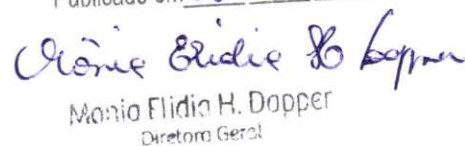 Publicado em
Mônia Elidia H. Dopper
Monia Elidia H. Dopper
Diretora Geral